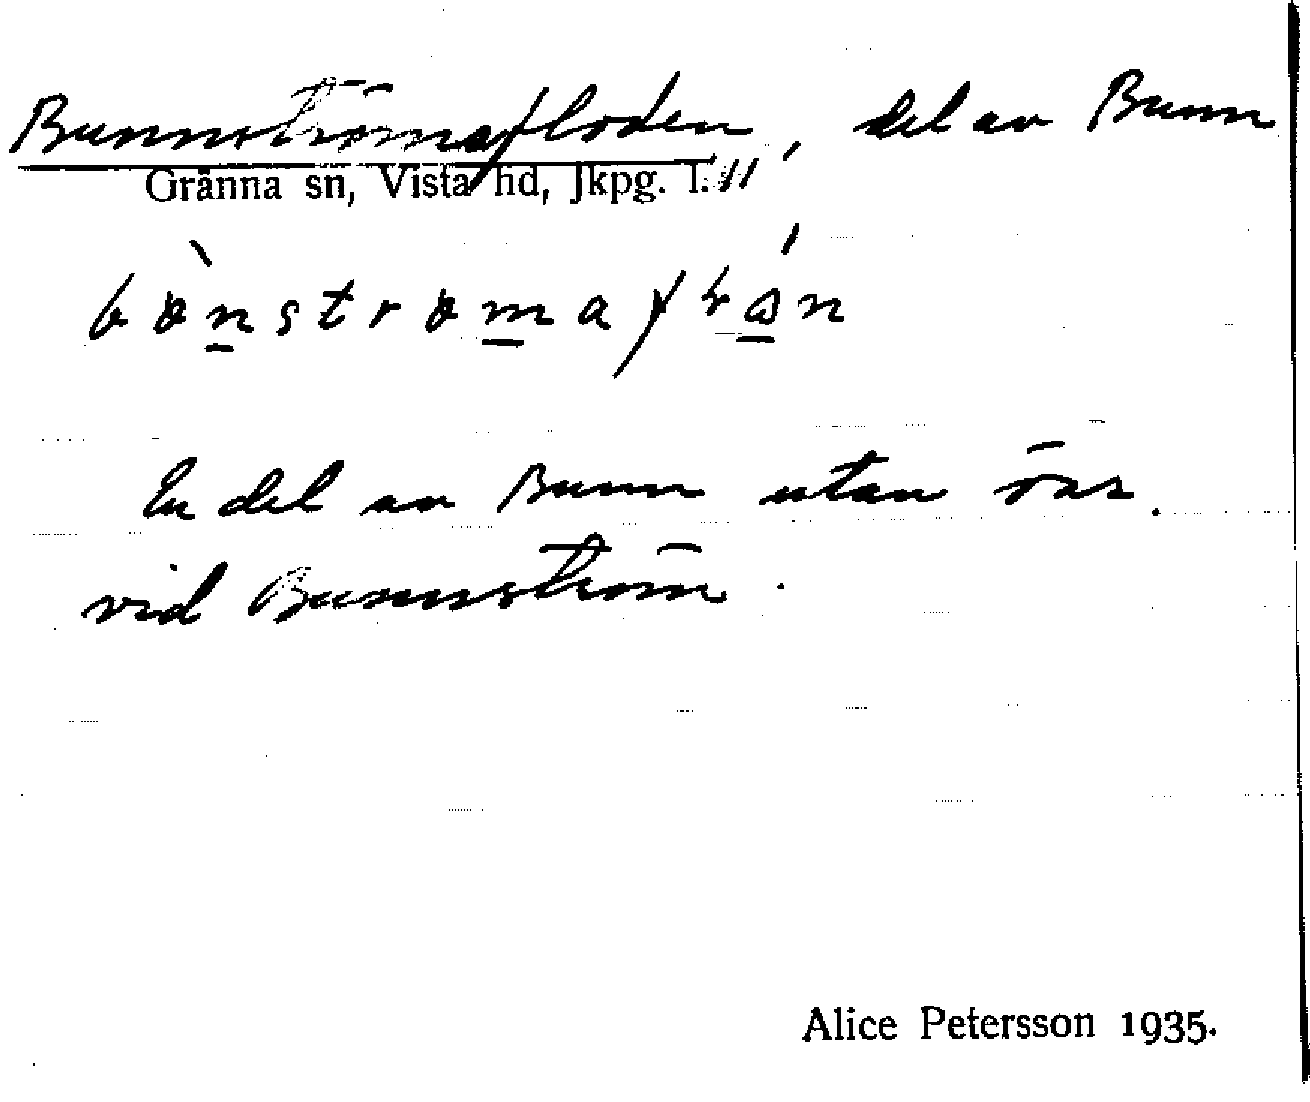 Bunnströmafloden, del av Bunn
Gränna sn, Vista hd, Jkpg. l.
En del av Bunn utan öar.
vid Bunnström.
Alice Petersson 1935.